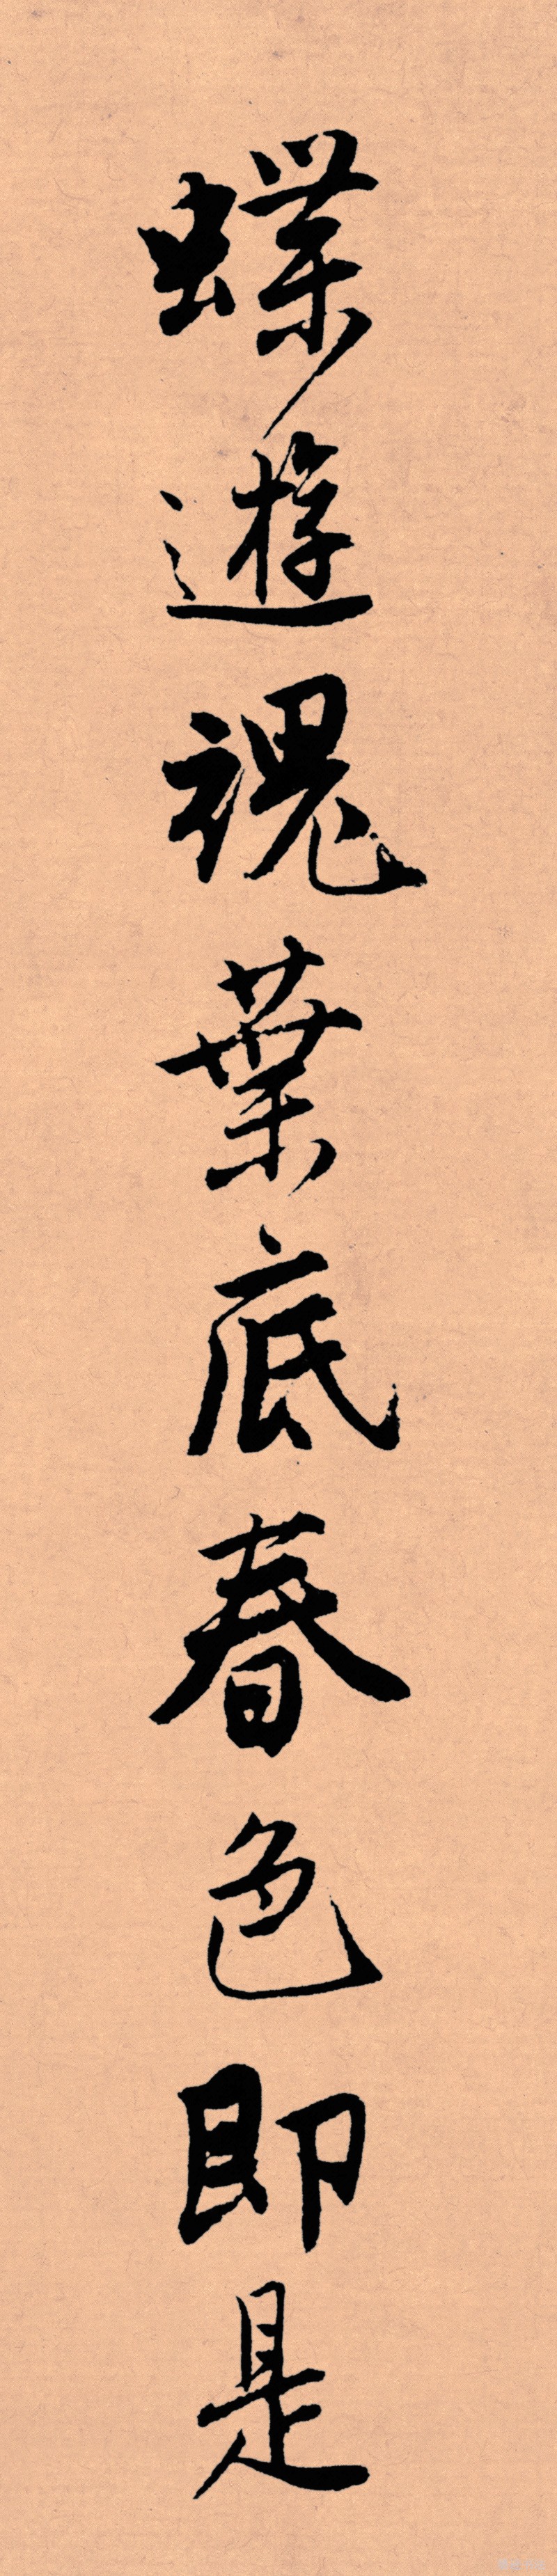 蝶遊魂葉底春色即是